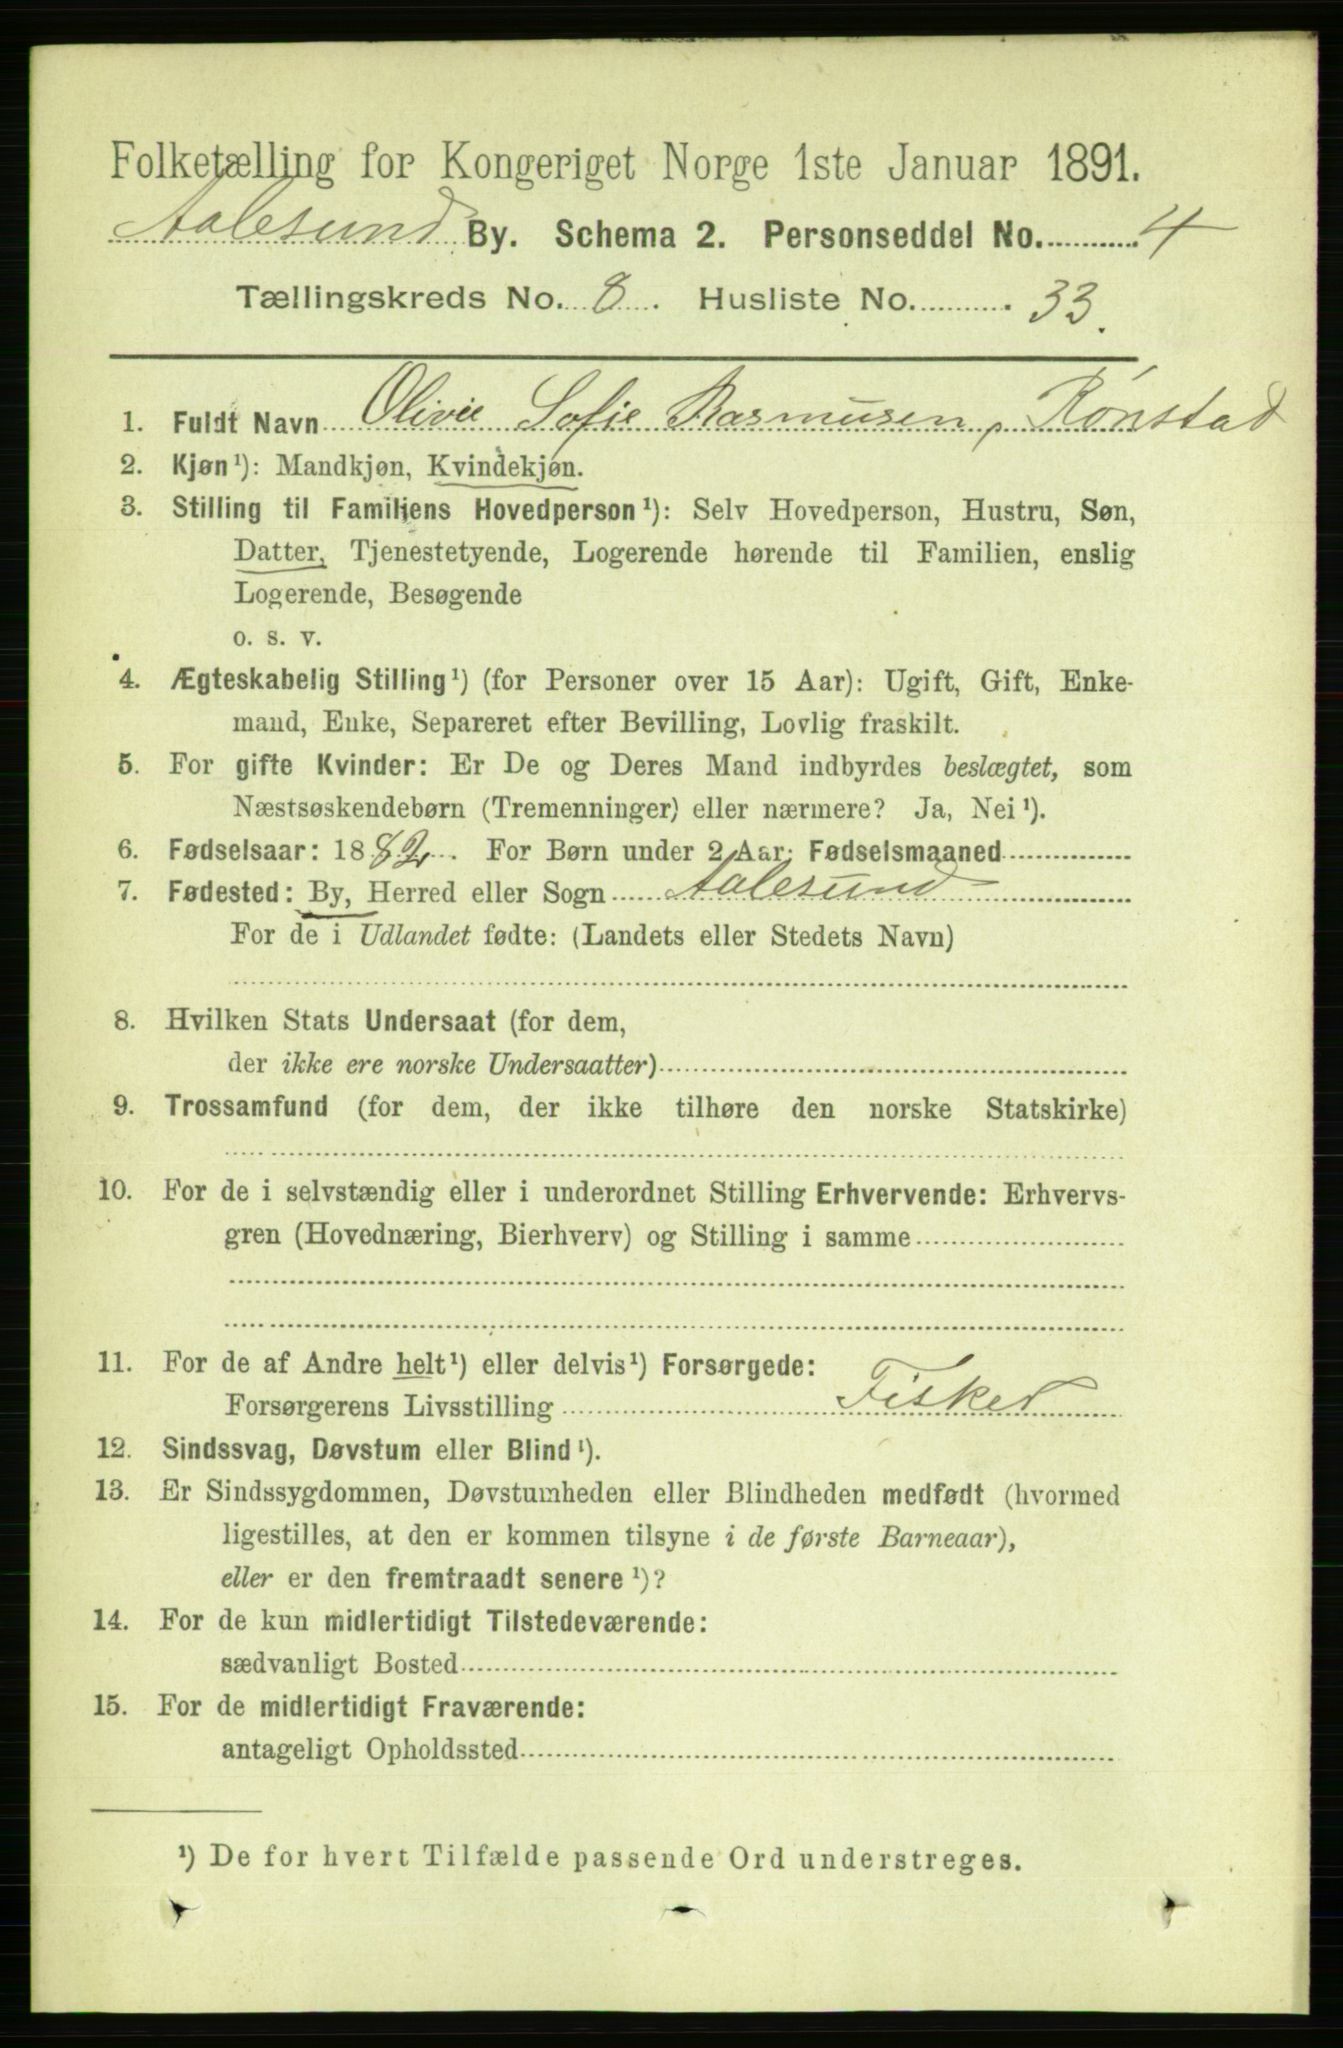 Folketælling for Kongeriget Norge 1ste Januar 1891.
Aalesund By. Schema 2. Personseddel No. 4
Tællingskreds No. 8. Husliste No. 33.
1. Fuldt Navn Olivie Sofie Rasmusen, Rønstad
2. Kjøn¹): Mandkjøn, Kvindekjøn.
3. Stilling til Familiens Hovedperson¹): Selv Hovedperson, Hustru, Søn,
Datter, Tjenestetyende, Logerende hørende til Familien, enslig
Logerende, Besøgende
o. s. v.
4. Ægteskabelig Stilling¹) (for Personer over 15 Aar): Ugift, Gift, Enke-
mand, Enke, Separeret efter Bevilling, Lovlig fraskilt.
5. For gifte Kvinder: Er De og Deres Mand indbyrdes beslægtet, som
Næstsøskendebørn (Tremenninger) eller nærmere? Ja, Nei¹).
6. Fødselsaar: 1882. For Børn under 2 Aar: Fødselsmaaned
7. Fødested: By, Herred eller Sogn Aalesund
For de i Udlandet fødte: (Landets eller Stedets Navn)
8. Hvilken Stats Undersaat (for dem,
der ikke ere norske Undersaatter)
9. Trossamfund (for dem, der ikke tilhøre den norske Statskirke)
10. For de i selvstændig eller i underordnet Stilling Erhvervende: Erhvervs-
gren (Hovednæring, Bierhverv) og Stilling i samme
11. For de af Andre helt¹) eller delvis¹) Forsørgede:
Forsørgerens Livsstilling Fisker
12. Sindssvag, Døvstum eller Blind¹).
13. Er Sindssygdommen, Døvstumheden eller Blindheden medfødt (hvormed
ligestilles, at den er kommen tilsyne i de første Barneaar),
eller er den fremtraadt senere¹)?
14. For de kun midlertidigt Tilstedeværende:
sædvanligt Bosted
15. For de midlertidigt Fraværende:
antageligt Opholdssted
¹) De for hvert Tilfælde passende Ord understreges.